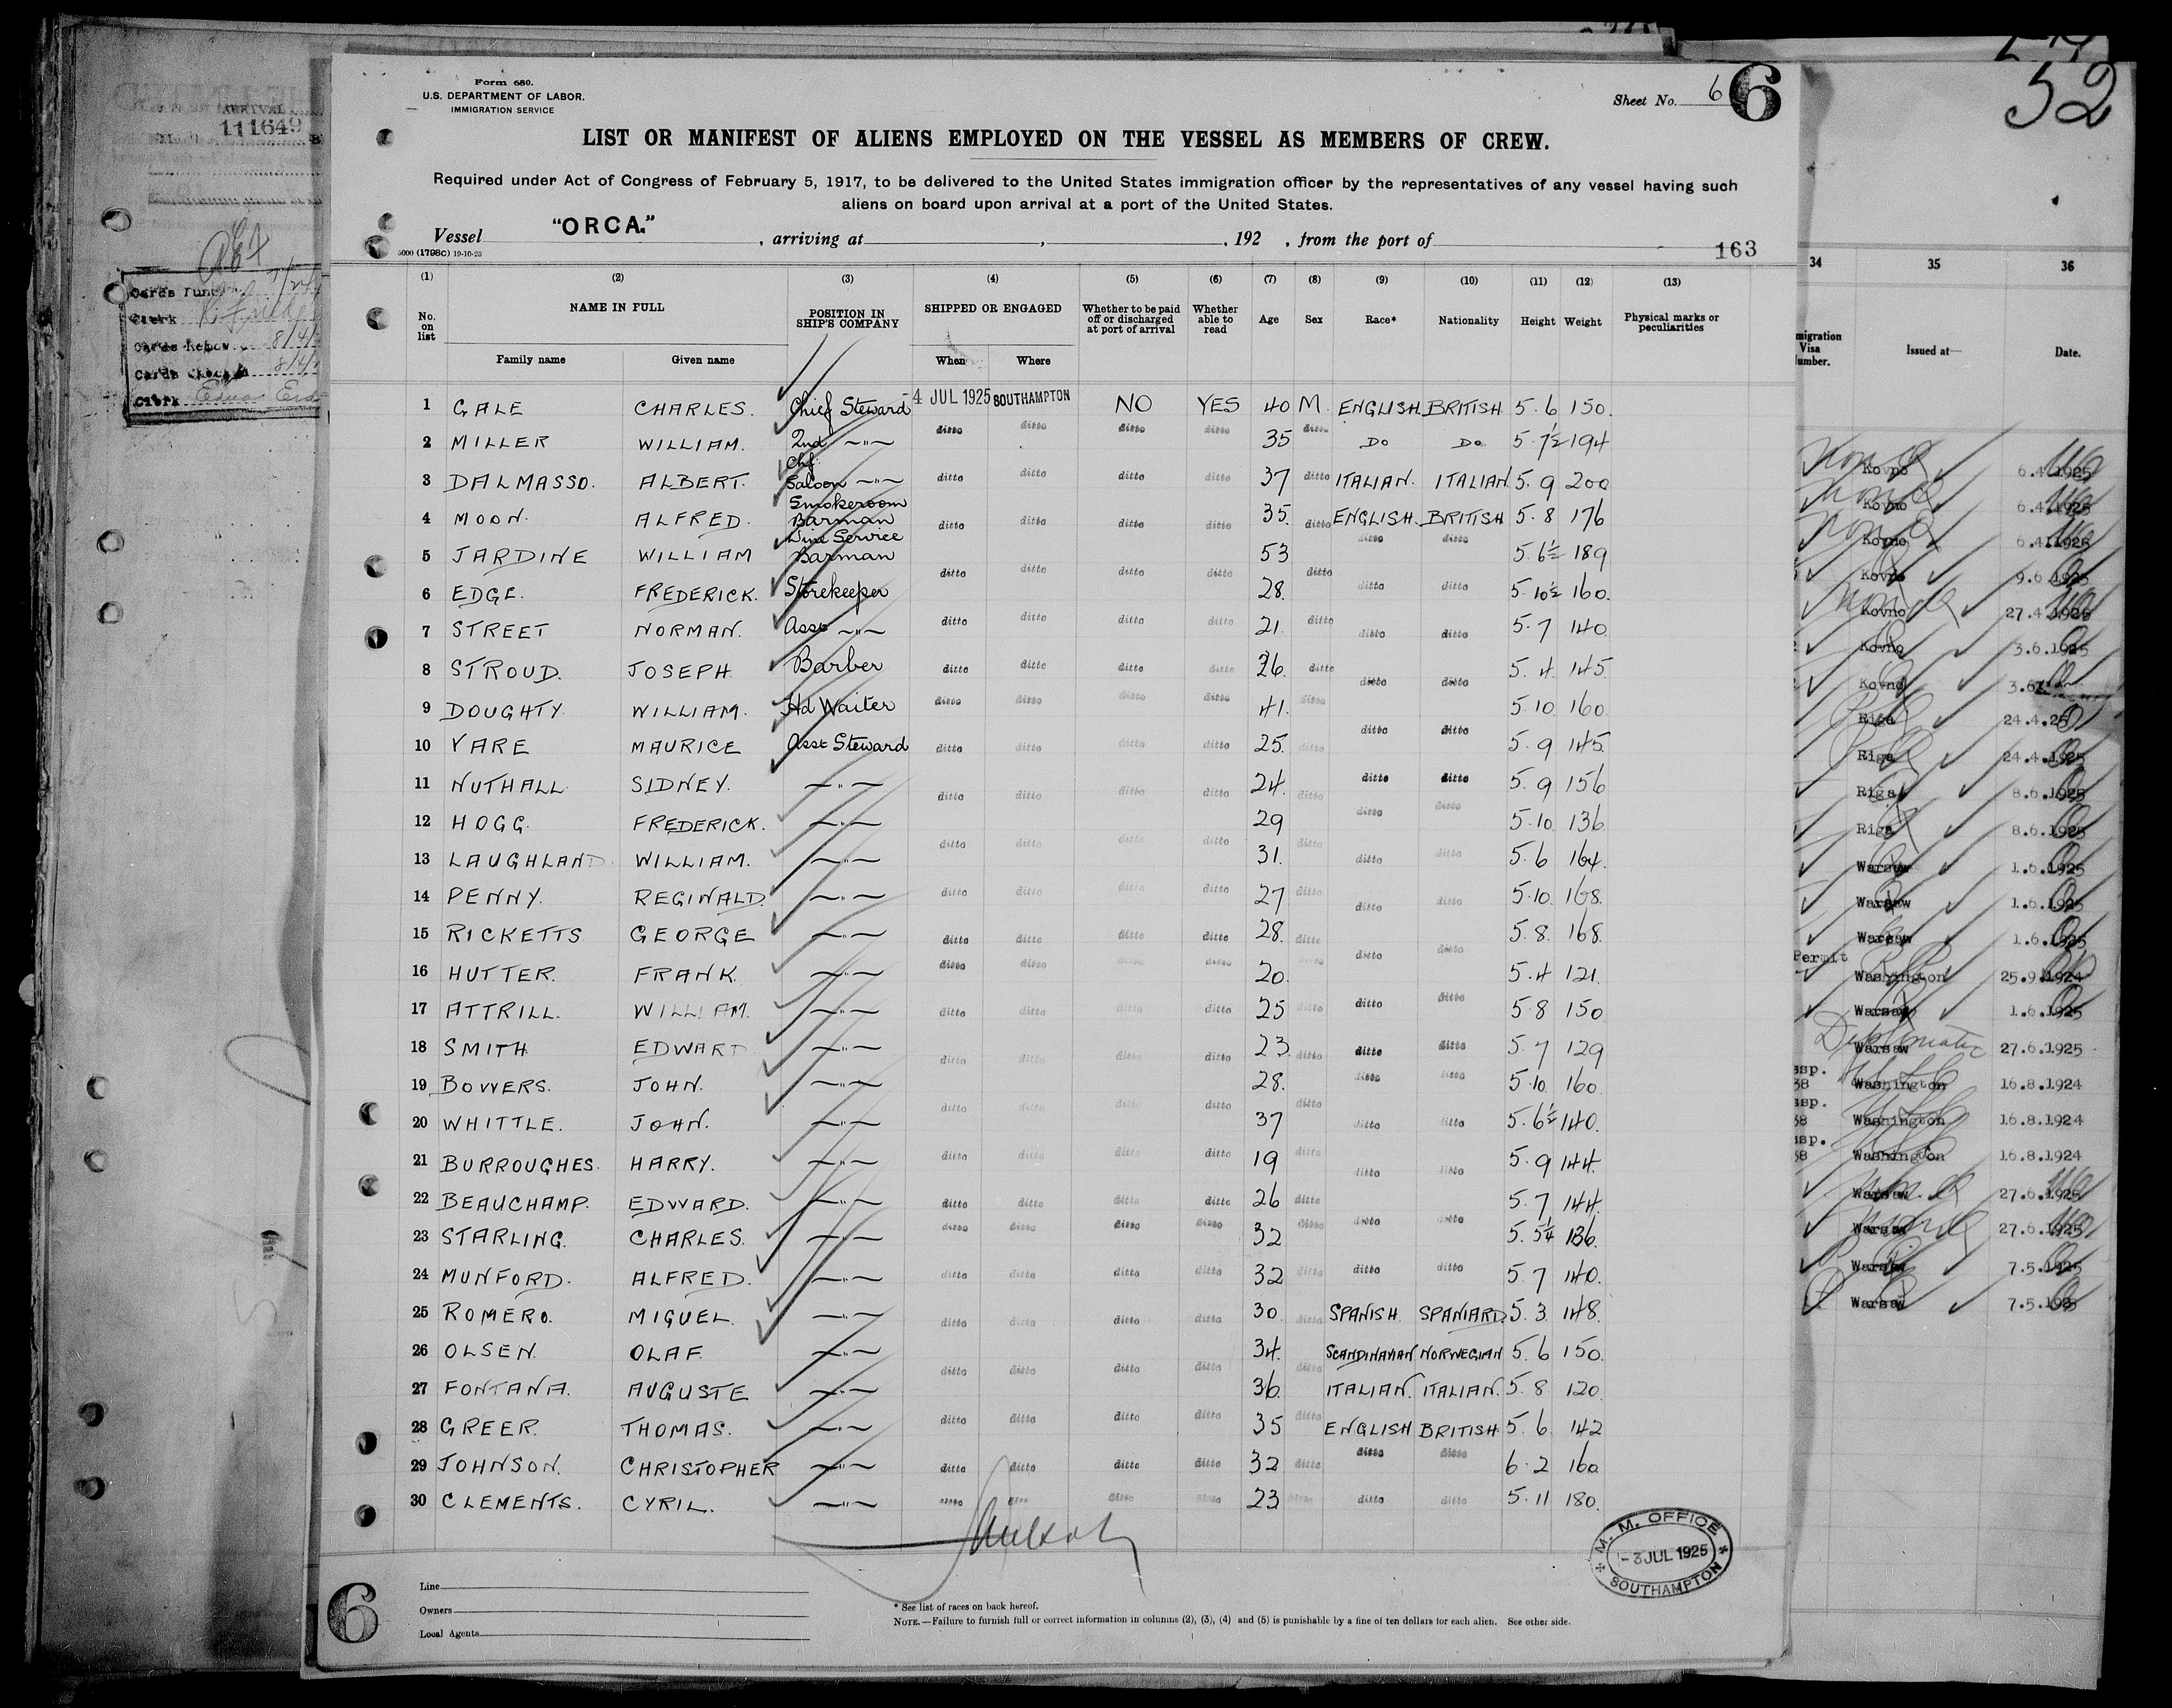 Form 680.
U.S. DEPARTMENT OF LABOR.
IMMIGRATION SERVICE
Sheet No. 6 6
LIST OR MANIFEST OF ALIENS EMPLOYED ON THE VESSEL AS MEMBERS OF CREW.
Required under Act of Congress of February 5, 1917, to be delivered to the United States immigration officer by the representatives of any vessel having such
aliens on board upon arrival at a port of the United States.
Vessel "ORCA." , arriving at , , 192 , from the port of
5000 (1798C) 19-10-23
163
(1) (2) (3) (4) (5) (6) (7) (8) (9) (10) (11) (12) (13)
No. on list NAME IN FULL POSITION IN SHIP'S COMPANY SHIPPED OR ENGAGED Whether to be paid off or discharged at port of arrival Whether able to read Age Sex Race* Nationality Height Weight Physical marks or peculiarities
Family name Given name When Where
1 GALE CHARLES. Chief Steward 4 JUL 1925 SOUTHAMPTON NO YES 40 M. ENGLISH BRITISH 5.6 150.
2 MILLER WILLIAM. 2nd —"— ditto ditto ditto ditto 35 ditto DO DO 5.7½ 194
3 DALMASSO. ALBERT. Chf. Saloon —"— ditto ditto ditto ditto 37 ditto ITALIAN. ITALIAN 5.9 200
4 MOON. ALFRED. Smokeroom Barman ditto ditto ditto ditto 35. ditto ENGLISH. BRITISH 5.8 176
5 JARDINE WILLIAM Wine Service Barman ditto ditto ditto ditto 53 ditto ditto ditto 5.6½ 189
6 EDGE. FREDERICK. Storekeeper 28. ditto ditto 5.10½ 160.
7 STREET NORMAN. Asst —"— ditto ditto ditto ditto 21. ditto ditto ditto 5.7 140
8 STROUD. JOSEPH. Barber ditto ditto ditto ditto 26. ditto ditto ditto 5.4. 145.
9 DOUGHTY. WILLIAM. Hd Waiter ditto ditto ditto ditto 41. ditto 5.10 160
10 VARE MAURICE Asst Steward ditto ditto ditto ditto 25. ditto ditto ditto 5.9 145.
11 NUTHALL SIDNEY. —"— ditto ditto ditto ditto 24. ditto ditto ditto 5.9 156
12 HOGG. FREDERICK. —"— 29 ditto ditto 5.10. 136
13 LAUGHLAND WILLIAM. —"— ditto ditto ditto ditto 31. ditto ditto ditto 5.6 164.
14 PENNY. REGINALD. —"— ditto ditto ditto ditto 27 ditto ditto ditto 5.10. 168.
15 RICKETTS GEORGE —"— ditto ditto ditto ditto 28. ditto ditto ditto 5.8. 168.
16 HUTTER. FRANK. —"— ditto ditto ditto ditto 20. 5.4 121.
17 ATTRILL. WILLIAM. —"— ditto ditto ditto ditto 25 ditto ditto ditto 5.8 150
18 SMITH EDWARD —"— ditto ditto ditto ditto 23. ditto ditto ditto 5.7 129
19 BOWERS. JOHN. —"— 28. ditto ditto 5.10. 160.
20 WHITTLE. JOHN. —"— ditto ditto ditto ditto 37 ditto ditto ditto 5.6½ 140.
21 BURROUGHES. HARRY. —"— ditto ditto ditto ditto 19 ditto ditto ditto 5.9 144.
22 BEAUCHAMP. EDWARD. —"— ditto ditto ditto ditto 26 ditto 5.7 144.
23 STARLING. CHARLES. —"— ditto ditto ditto ditto 32 ditto ditto ditto 5.5¼ 136.
24 MUNFORD. ALFRED. —"— ditto ditto ditto ditto 32 ditto ditto ditto 5.7 140.
25 ROMERO. MIGUEL. —"— ditto ditto ditto ditto 30. ditto SPANISH. SPANIARD. 5.3 148.
26 OLSEN. OLAF. —"— 34. SCANDINAVIAN NORWEGIAN 5.6 150.
27 FONTANA. AUGUSTE —"— ditto ditto ditto ditto 36. ditto ITALIAN. ITALIAN. 5.8 120.
28 GREER. THOMAS. —"— ditto ditto ditto ditto 35 ditto ENGLISH BRITISH 5.6 142
29 JOHNSON. CHRISTOPHER —"— ditto ditto ditto ditto 32 ditto ditto ditto 6.2 160
30 CLEMENTS. CYRIL. —"— ditto ditto ditto ditto 23 ditto ditto ditto 5.11 180.
M. M. OFFICE
-3 JUL 1925
SOUTHAMPTON
6
Line
Owners
Local Agents
* See list of races on back hereof.
NOTE.—Failure to furnish full or correct information in columns (2), (3), (4) and (5) is punishable by a fine of ten dollars for each alien. See other side.
ARRIVAL
111649
Clerk
Clerk
52
34 35 36
Issued at— Date.
Kovno 6.4.1925
Kovno 6.4.1925
Kovno 6.4.1925
Kovno 9.6.1925
Kovno 27.4.1925
Kovno 3.6.1925
Kovno
Riga 24.4.25
Riga 24.4.1925
Riga 8.6.1925
Riga 8.6.1925
Warsaw 1.6.1925
Warsaw 1.6.1925
Warsaw 1.6.1925
Permit
Washington 25.9.1924
Warsaw 1.6.1925
Diplomatic
Warsaw 27.6.1925
Washington 16.8.1924
Washington 16.8.1924
Washington 16.8.1924
Warsaw 27.6.1925
Warsaw 27.6.1925
Warsaw 7.5.1925
Warsaw 7.5.1925